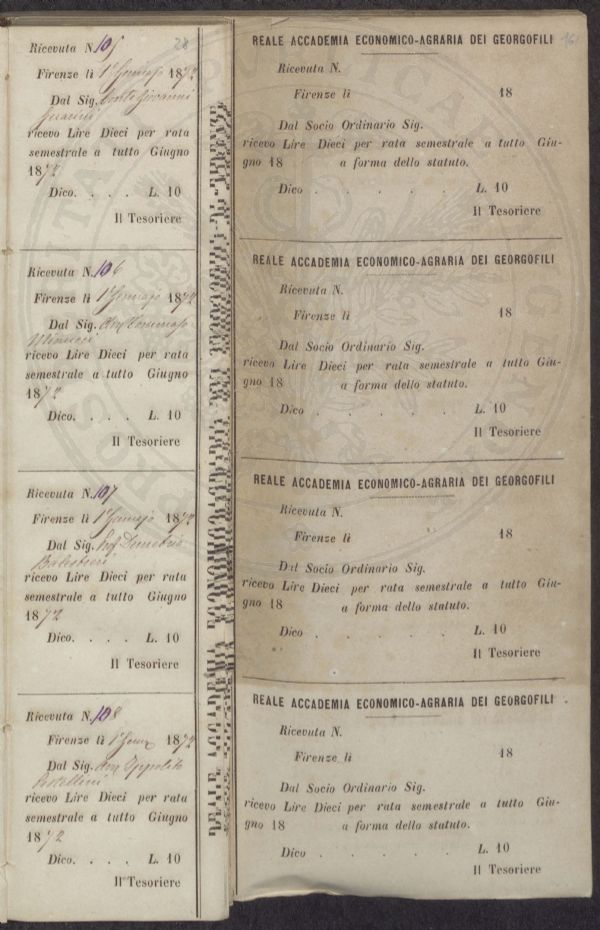 28
Ricevuta N. 105
Firenze lì 1° Gennajo 1872
Dal Sig. Conte Giovanni
Guicini
ricevo Lire Dieci per rata
semestrale a tutto Giugno
1872
Dico. . . . L. 10
Il Tesoriere
Ricevuta N. 106
Firenze lì 1° Gennajo 1872
Dal Sig. Tommaso
Minucci
ricevo Lire Dieci per rata
semestrale a tutto Giugno
1872
Dico. . . . L. 10
Il Tesoriere
Ricevuta N. 107
Firenze lì 1° Gennajo 1872
Dal Sig. Prof. Demetrio
ricevo Lire Dieci per rata
semestrale a tutto Giugno
1872
Dico. . . . L. 10
Il Tesoriere
Ricevuta N. 108
Firenze lì 1° 1872
Dal Sig. Ippolito
Pestellini
ricevo Lire Dieci per rata
semestrale a tutto Giugno
1872
Dico. . . . L. 10
Il Tesoriere
161
REALE ACCADEMIA ECONOMICO-AGRARIA DEI GEORGOFILI
Ricevuta N.
Firenze lì 18
Dal Socio Ordinario Sig.
ricevo Lire Dieci per rata semestrale a tutto Giu-
gno 18 a forma dello statuto.
Dico . . . . . L. 10
Il Tesoriere
REALE ACCADEMIA ECONOMICO-AGRARIA DEI GEORGOFILI
Ricevuta N.
Firenze lì 18
Dal Socio Ordinario Sig.
ricevo Lire Dieci per rata semestrale a tutto Giu-
gno 18 a forma dello statuto.
Dico . . . . . L. 10
Il Tesoriere
REALE ACCADEMIA ECONOMICO-AGRARIA DEI GEORGOFILI
Ricevuta N.
Firenze lì 18
Dal Socio Ordinario Sig.
ricevo Lire Dieci per rata semestrale a tutto Giu-
gno 18 a forma dello statuto.
Dico . . . . . L. 10
Il Tesoriere
REALE ACCADEMIA ECONOMICO-AGRARIA DEI GEORGOFILI
Ricevuta N.
Firenze lì 18
Dal Socio Ordinario Sig.
ricevo Lire Dieci per rata semestrale a tutto Giu-
gno 18 a forma dello statuto.
Dico . . . . . L. 10
Il Tesoriere